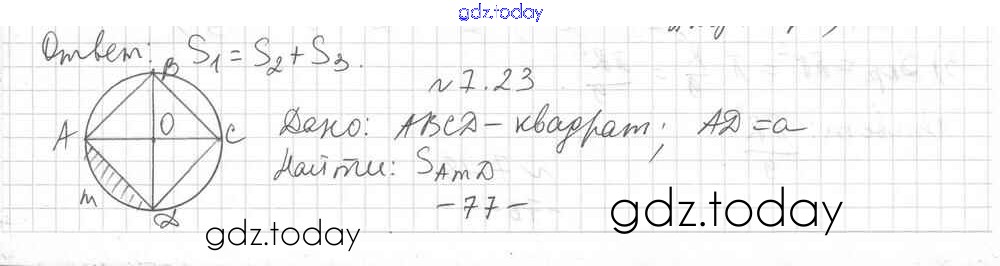 gdz.today
Ответ: S1 = S2 + S3.
№ 7.23
B
A O C
m
D
Дано: ABCD – квадрат; AD = a
Найти: SAmD
- 77 -
gdz.today
gdz.today